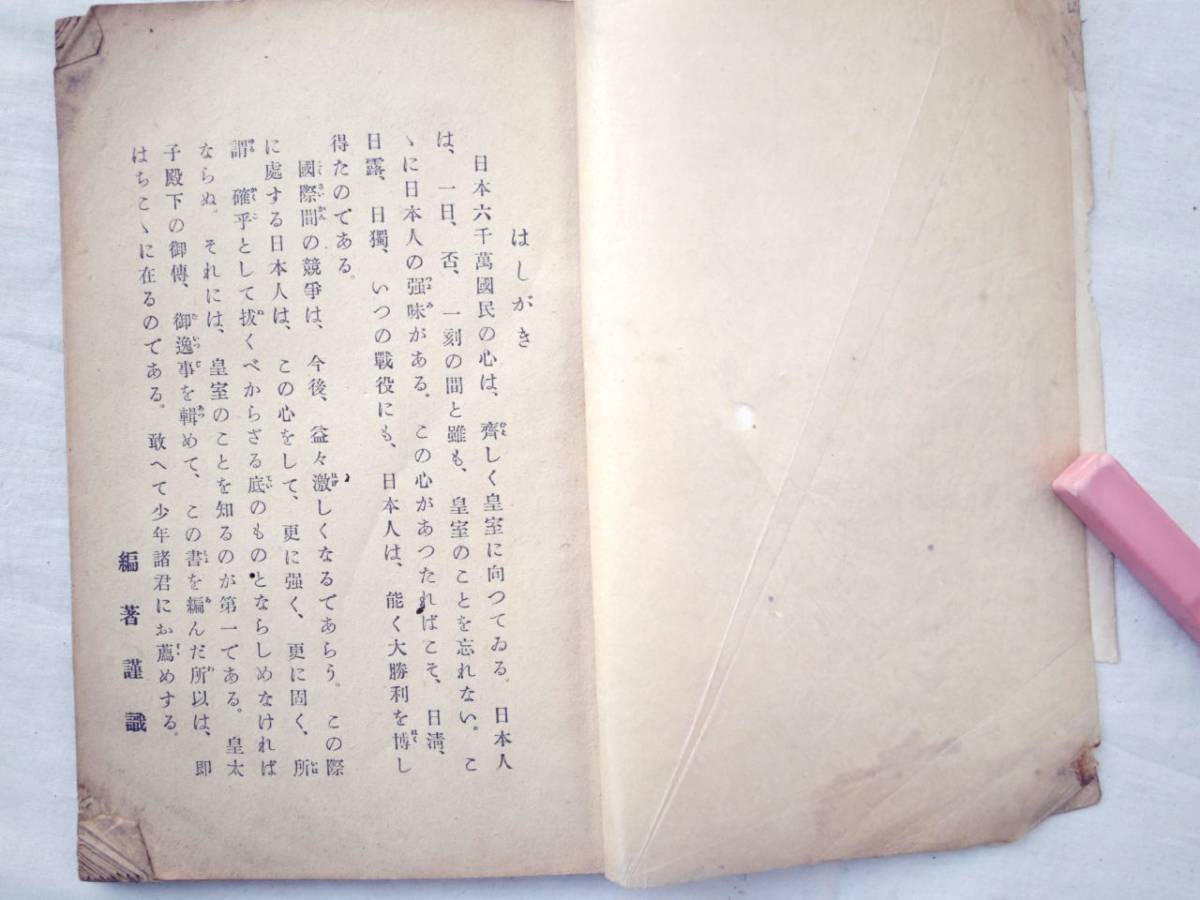 はしがき
日本六千萬國民の心は、齊しく皇室に向つてゐる。日本人
は、一日、否、一刻の間と雖も、皇室のことを忘れない。こ
ゝに日本人の强味がある。この心があつたればこそ、日淸、
日露、日獨、いつの戰役にも、日本人は、能く大勝利を博し
得たのである。
國際間の競爭は、今後、益々激しくなるであらう。この際
に處する日本人は、この心をして、更に强く、更に固く、所
謂確乎として拔くべからざる底のものとならしめなければ
ならぬ。それには、皇室のことを知るのが第一である。皇太
子殿下の御傳、御逸事を輯めて、この書を編んだ所以は、卽
はちこゝに在るのである。敢へて少年諸君にお薦めする。
編著謹識